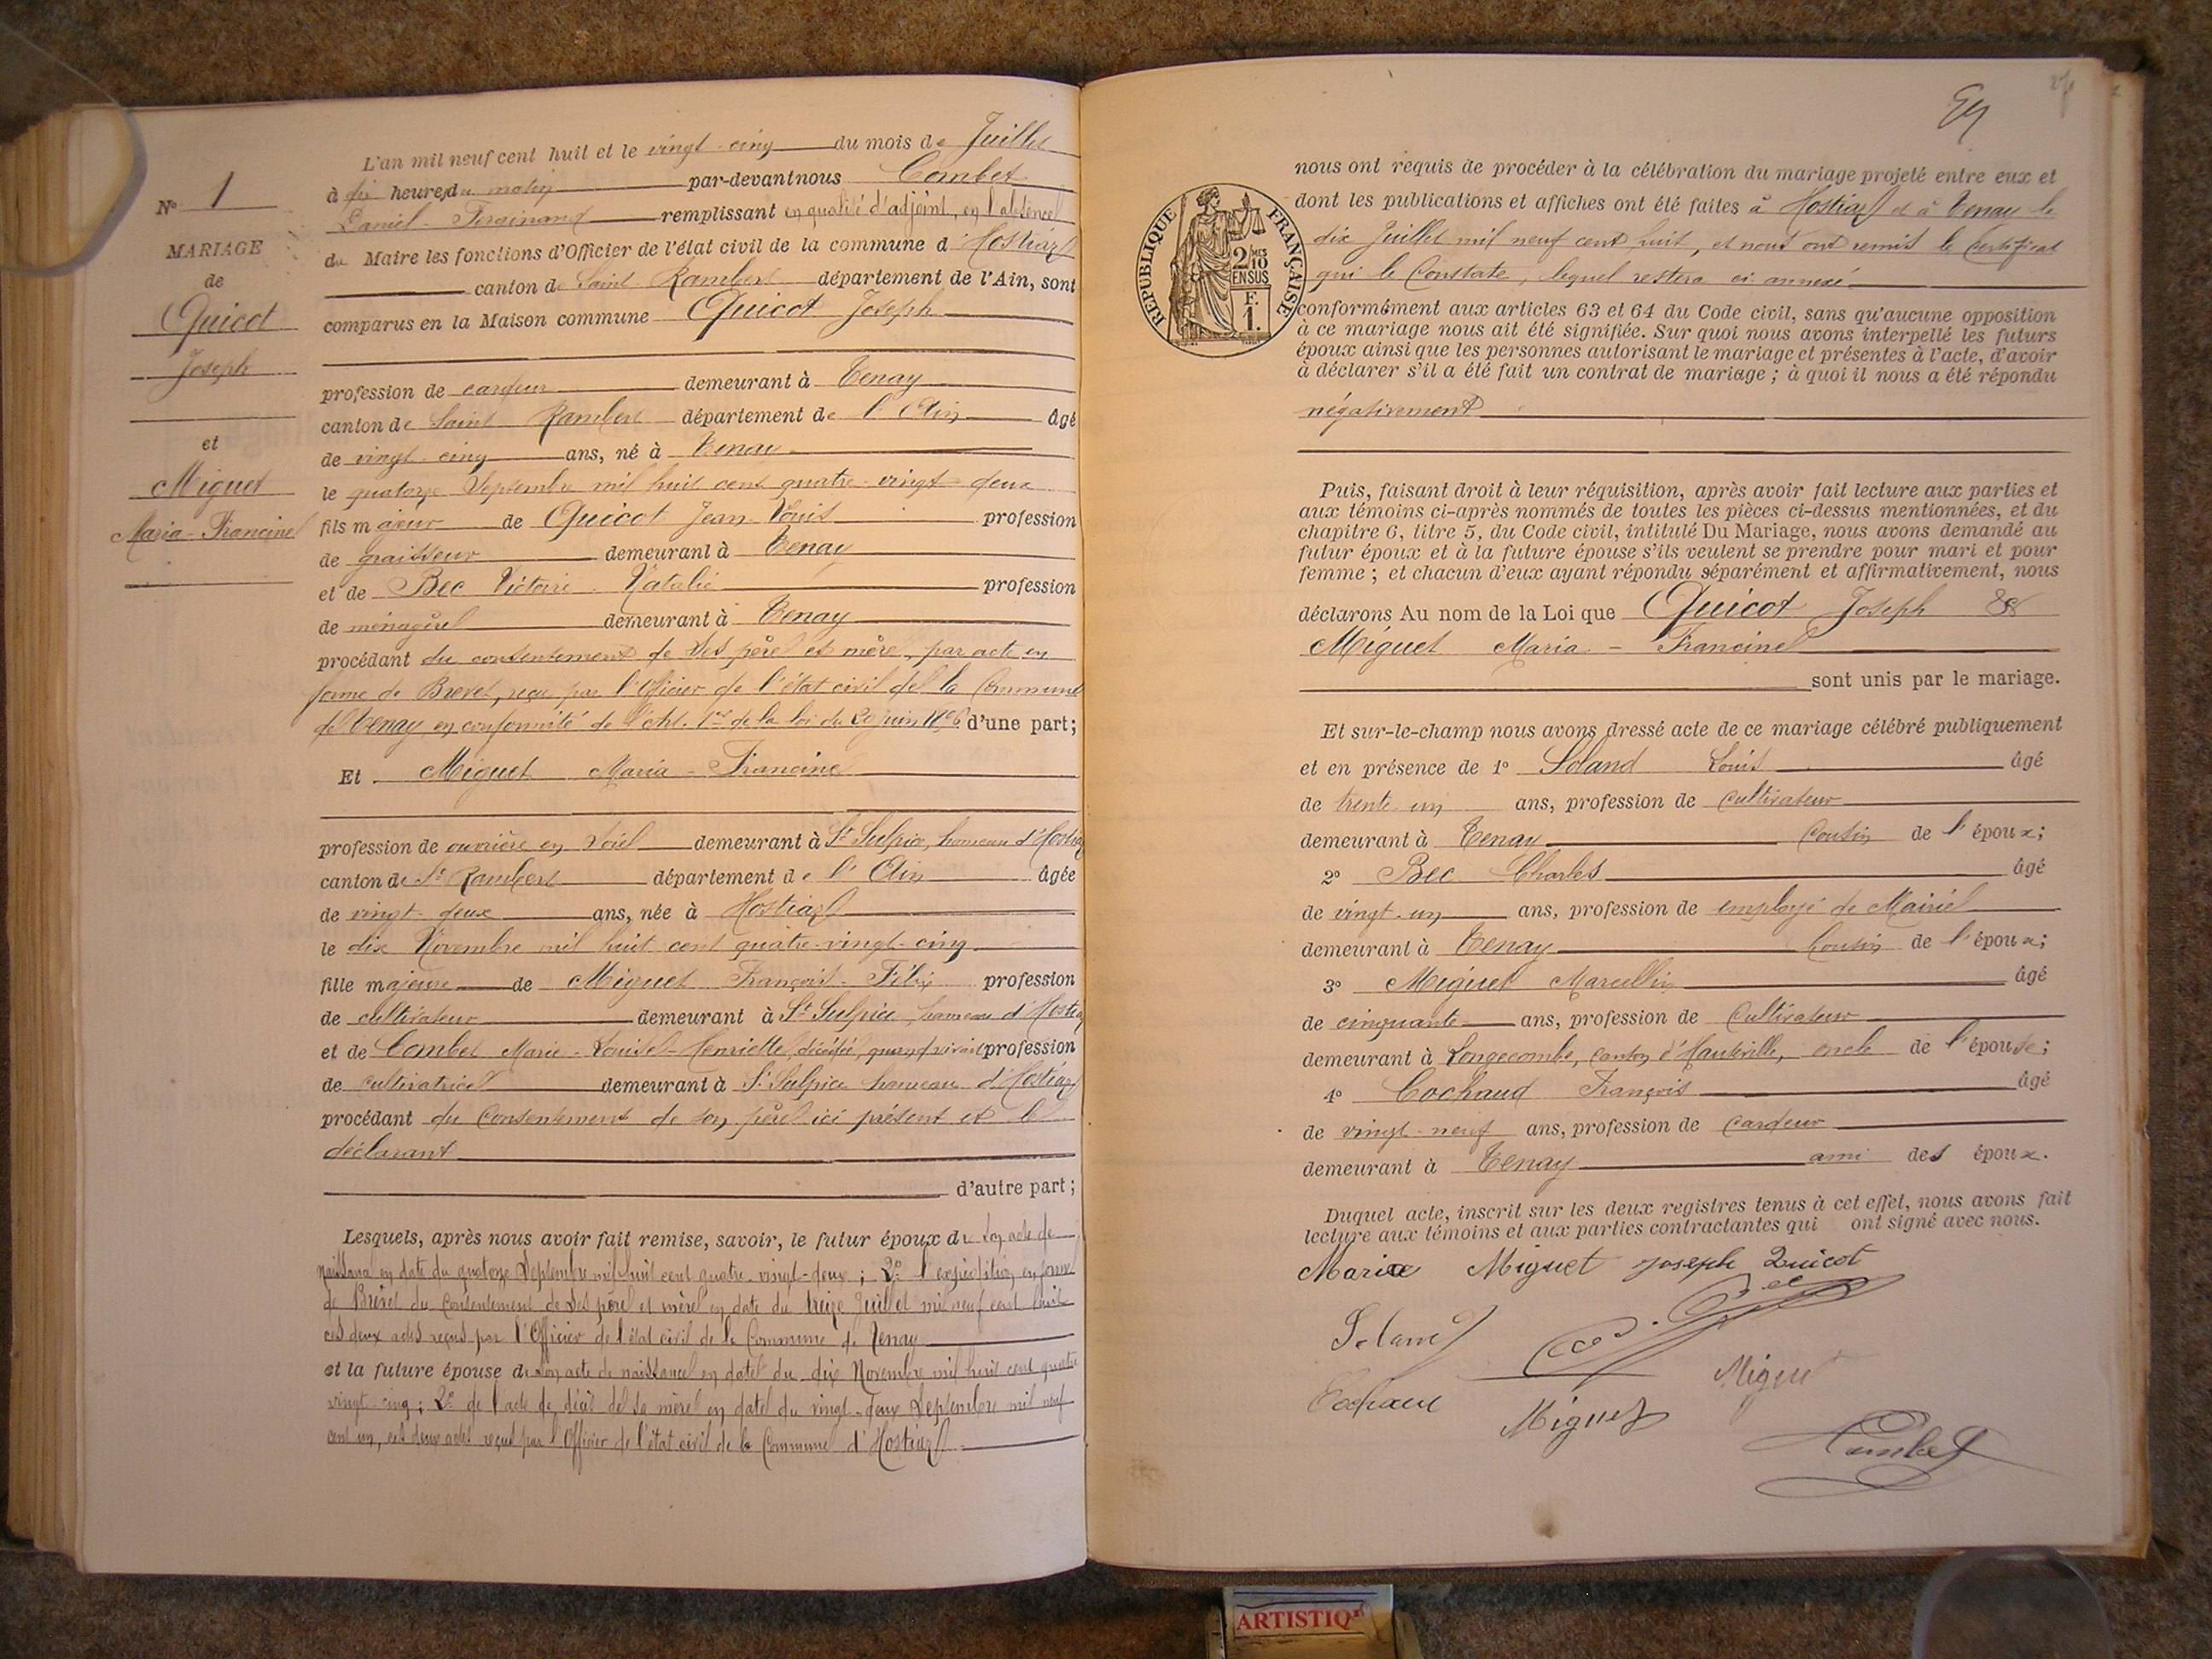 N° 1
MARIAGE
de
Quicot
Joseph
et
Miguet
Maria-Francine
L'an mil neuf cent huit et le vingt-cinq du mois de Juillet
à dix heures du matin par-devant nous Combet
Daniel-Ferdinand remplissant en qualité d'adjoint, en l'absence
du Maire les fonctions d'Officier de l'état civil de la commune d'Hostiaz
canton de Saint-Rambert département de l'Ain, sont
comparus en la Maison commune Quicot Joseph
profession de cardeur demeurant à Tenay
canton de Saint Rambert département de l'Ain âgé
de vingt-cinq ans, né à Tenay
le quatorze Septembre mil huit cent quatre-vingt-deux
fils majeur de Quicot Jean-Louis profession
de graisseur demeurant à Tenay
et de Bec Victoire Natalie profession
de ménagère demeurant à Tenay
procédant du consentement de ses père et mère, par acte en
forme de Brevet, reçu par l'Officier de l'état civil de la Commune
de Tenay en conformité de l'Art. 1er de la loi du 20 juin d'une part;
Et Miguet Maria-Francine
profession de ouvrière en soie demeurant à St Sulpice, hameau d'Hostiaz
canton de St Rambert département de l'Ain âgée
de vingt-deux ans, née à Hostiaz
le dix Novembre mil huit cent quatre-vingt-cinq
fille majeure de Miguet François-Félix profession
de cultivateur demeurant à St Sulpice, hameau d'Hostiaz
et de Combet Marie-Louise-Henriette décédée, quand vivait profession
de cultivatrice demeurant à St Sulpice hameau d'Hostiaz
procédant du Consentement de son père ici présent et le
déclarant
d'autre part;
Lesquels, après nous avoir fait remise, savoir, le futur époux de son acte de
naissance en date du quatorze Septembre mil huit cent quatre-vingt-deux; 2° l'expédition en forme
de Brevet du consentement de ses père et mère en date du treize Juillet mil neuf cent huit
ces deux actes reçus par l'Officier de l'état civil de la Commune de Tenay
et la future épouse de son acte de naissance en date du dix Novembre mil huit cent quatre
vingt-cinq; 2° de l'acte de décès de sa mère en date du vingt-deux Septembre mil neuf
cent un, ces deux actes reçus par l'Officier de l'état civil de la Commune d'Hostiaz
nous ont requis de procéder à la célébration du mariage projeté entre eux et
dont les publications et affiches ont été faites à Hostiaz et à Tenay le
dix Juillet mil neuf cent huit, et nous ont remis le Certificat
qui le Constate, lequel restera ci-annexé
RÉPUBLIQUE FRANÇAISE
2/10MES
EN SUS
F.
1.
conformément aux articles 63 et 64 du Code civil, sans qu'aucune opposition
à ce mariage nous ait été signifiée. Sur quoi nous avons interpellé les futurs
époux ainsi que les personnes autorisant le mariage et présentes à l'acte, d'avoir
à déclarer s'il a été fait un contrat de mariage; à quoi il nous a été répondu
négativement
Puis, faisant droit à leur réquisition, après avoir fait lecture aux parties et
aux témoins ci-après nommés de toutes les pièces ci-dessus mentionnées, et du
chapitre 6, titre 5, du Code civil, intitulé Du Mariage, nous avons demandé au
futur époux et à la future épouse s'ils veulent se prendre pour mari et pour
femme; et chacun d'eux ayant répondu séparément et affirmativement, nous
déclarons Au nom de la Loi que Quicot Joseph &
Miguet Maria-Francine
sont unis par le mariage.
Et sur-le-champ nous avons dressé acte de ce mariage célébré publiquement
et en présence de 1° Soland Louis âgé
de trente un ans, profession de cultivateur
demeurant à Tenay Cousin de l'époux;
2° Bec Charles âgé
de vingt-un ans, profession de employé de Mairie
demeurant à Tenay Cousin de l'époux;
3° Miguet Marcellin âgé
de cinquante ans, profession de Cultivateur
demeurant à Longecombe, canton d'Hauteville, oncle de l'épouse;
4° Cochaud François âgé
de vingt-neuf ans, profession de cardeur
demeurant à Tenay ami des époux.
Duquel acte, inscrit sur les deux registres tenus à cet effet, nous avons fait
lecture aux témoins et aux parties contractantes qui ont signé avec nous.
Maria Miguet Joseph Quicot
Soland
Miguet
Cochaud
Miguet
Combet
ARTISTIQ